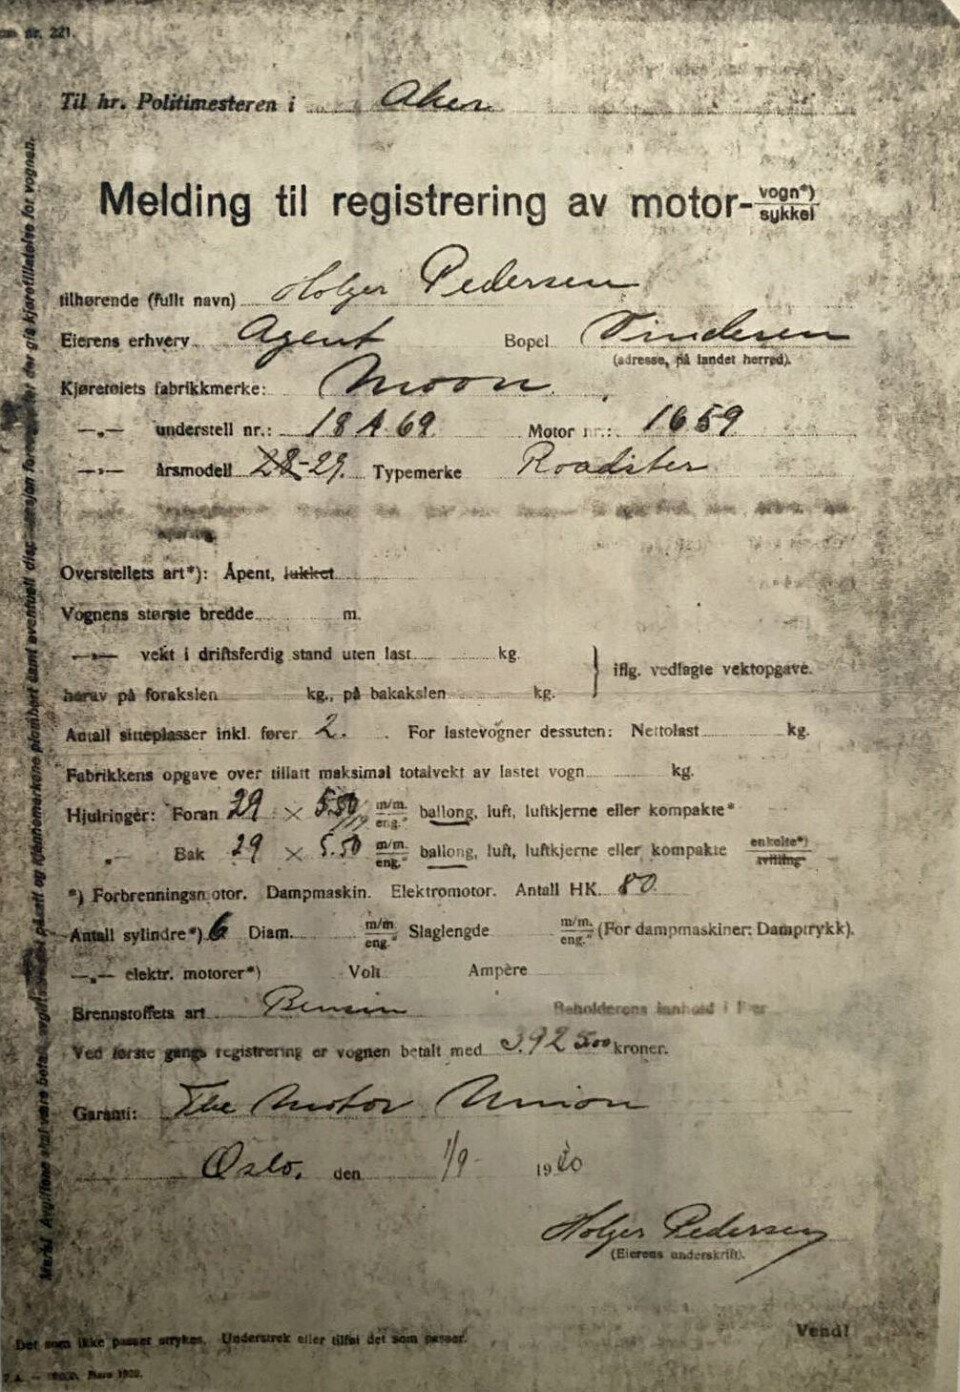 nr. 221.
Til hr. Politimesteren i Aker
Melding til registrering av motor- vogn*) sykkel
tilhørende (fullt navn) Holger Pedersen
Eierens erhverv Agent Bopel Vinderen
(adresse, på landet herred).
Kjøretøiets fabrikkmerke: Moon
—„— understell nr.: 18 A 69 Motor nr.: 1659
—„— årsmodell 28-29. Typemerke Roadster
Overstellets art*): Åpent, lukket
Vognens største bredde m.
—„— vekt i driftsferdig stand uten last kg.
iflg. vedlagte vektopgave.
herav på forakslen kg., på bakakslen kg.
Antall sitteplasser inkl. fører 2. For lastevogner dessuten: Nettolast kg.
Fabrikkens opgave over tillatt maksimal totalvekt av lastet vogn kg.
Hjulringer: Foran 29 × 5.50 m/m. eng." ballong, luft, luftkjerne eller kompakte*
„— Bak 29 × 5.50 m/m. eng." ballong, luft, luftkjerne eller kompakte enkelte*) tvilling
*) Forbrenningsmotor. Dampmaskin. Elektromotor. Antall HK. 80
Antall sylindre*) 6 Diam. m/m eng." Slaglengde m/m. eng." (For dampmaskiner: Damptrykk).
—„— elektr. motorer*) Volt Ampère
Brennstoffets art Bensin Beholderens innhold i
Ved første gangs registrering er vognen betalt med kroner.
Garanti: The Motor Union
Oslo, den 1/9 19
Holger Pedersen
(Eierens underskrift).
Det som ikke passer strykes. Understrek eller tilføi det som passer.
Vend!
Merk! Avgiftene skal være betalt,